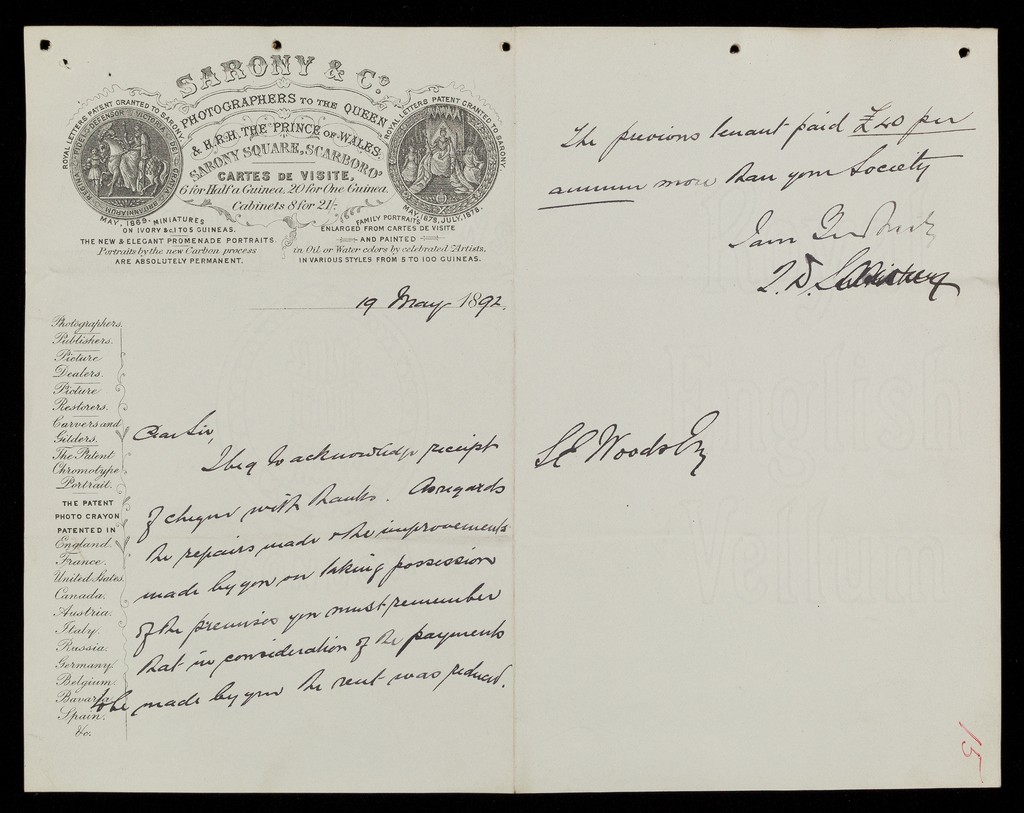 SARONY & Co.
PHOTOGRAPHERS TO THE QUEEN
& H.R.H. THE PRINCE OF WALES.
SARONY SQUARE, SCARBORO'
CARTES DE VISITE,
6 for Half a Guinea, 20 for One Guinea.
Cabinets 8 for 21/-
ROYAL LETTERS PATENT GRANTED TO SARONY
MAY, 1869.
ROYAL LETTERS PATENT GRANTED TO SARONY.
MAY, 1878, JULY, 1878.
MINIATURES
ON IVORY &c. 1 TO 5 GUINEAS.
THE NEW & ELEGANT PROMENADE PORTRAITS
Portraits by the new Carbon process
ARE ABSOLUTELY PERMANENT.
FAMILY PORTRAITS
ENLARGED FROM CARTES DE VISITE
AND PAINTED
in Oil or Water colors by celebrated Artists,
IN VARIOUS STYLES FROM 5 TO 100 GUINEAS.
19 May 1892.
Photographers
Publishers.
Picture
Dealers.
Picture
Restorers.
Carvers and
Gilders.
The Patent
Chromotype
Portrait.
THE PATENT
PHOTO CRAYON
PATENTED IN
England.
France.
United States.
Canada.
Austria.
Italy.
Russia.
Germany.
Belgium.
Bavaria.
Spain.
&c.
Dear Sir,
I beg to acknowledge receipt
of cheque with thanks. As regards
the repairs made & the improvements
made by you on taking possession
of the premises you must remember
that in consideration of the payments
to be made by you the rent was reduced.
The previous tenant paid £40 per
annum more than your Society
I am
S E Woods Esq
English
Vellum
15